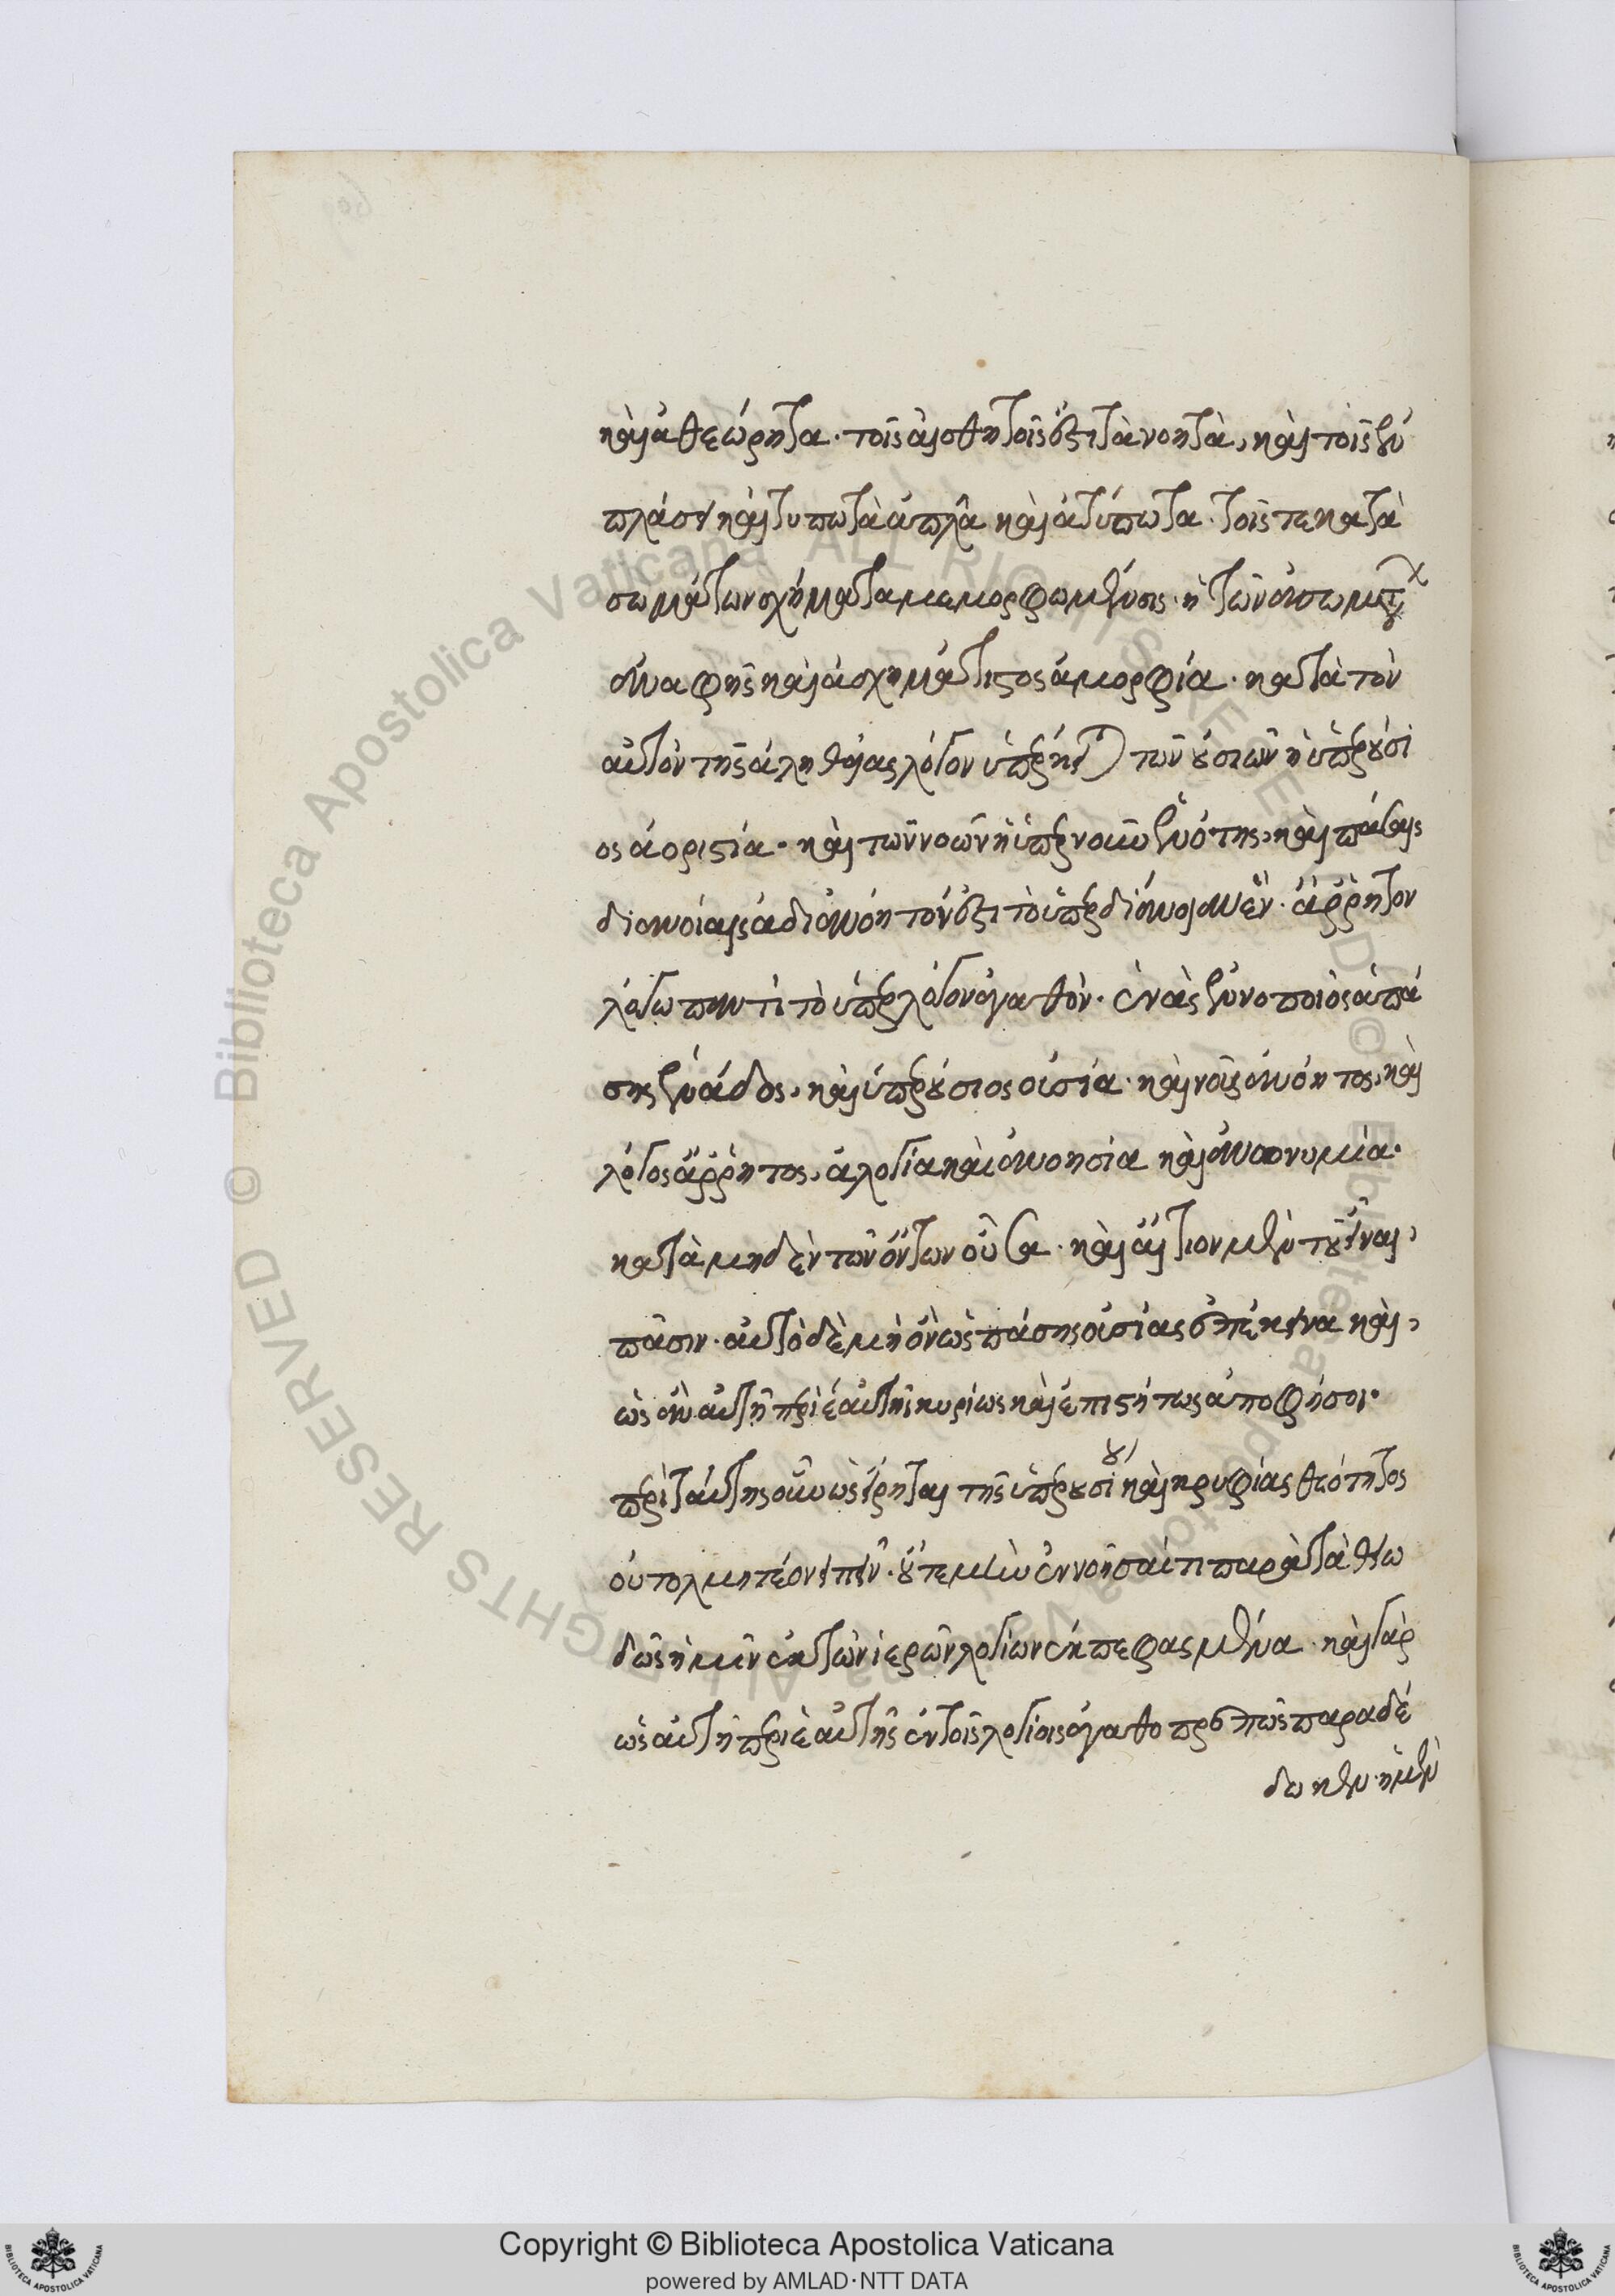 καὶ ἀθεώρητα. τοῖς αἰσθητοῖς ἐστι τὰ νοητὰ, καὶ τοῖς ἐν
πλάσει καὶ τυπωτὰ ἁπλᾶ καὶ ἀτύπωτα. τοῖς τε κατὰ
σωμάτων σχήματα μεμορφωμένοις. ἡ τῶν ἀσωμάτων
ἀναφὴς καὶ ἀσχημάτιστος ἀμορφία. κατὰ τὸν
αὐτὸν τῆς ἀληθείας λόγον ὑπέρκειται τῶν οὐσιῶν ἡ ὑπερούσι
ος ἀοριστία. καὶ τῶν νοῶν ἡ ὑπὲρ νοῦν ἑνότης. καὶ πάσαις
διανοίαις ἀδιανόητόν ἐστι τὸ ὑπὲρ διάνοιαν ἕν. ἄῤῥητον
λόγω παντὶ τὸ ὑπὲρ λόγον ἀγαθόν. ἑνὰς ἑνοποιὸς ἁπά
σης ἑνάδος. καὶ ὑπερούσιος οὐσία. καὶ νοῦς ἀνόητος. καὶ
λόγος ἄῤῥητος. ἀλογία καὶ ἀνοησία καὶ ἀνωνυμία.
κατὰ μηδὲν τῶν ὄντων οὖσα. καὶ αἴτιον μὲν τοῦ εἶναι
πᾶσιν. αὐτὸ δὲ μὴ ὂν ὡς πάσης οὐσίας ἐπέκεινα καὶ
ὡς ἂν αὐτὴ περὶ ἑαυτῆς κυρίως καὶ ἐπιστητῶς ἀποφήσοι.
περὶ ταύτης οὖν ὡς εἴρηται τῆς ὑπερουσίου καὶ κρυφίας θεότητος
οὐ τολμητέον εἰπεῖν. οὔτε μὴν ἐννοῆσαί τι παρὰ τὰ θειω
δῶς ἡμῖν ἐκ τῶν ἱερῶν λογίων ἐκπεφασμένα. καὶ γὰρ
ὡς αὐτὴ περὶ ἑαυτῆς ἐν τοῖς λογίοις ἀγαθοπρεπῶς παραδέ
δωκεν. ἡ μὲν